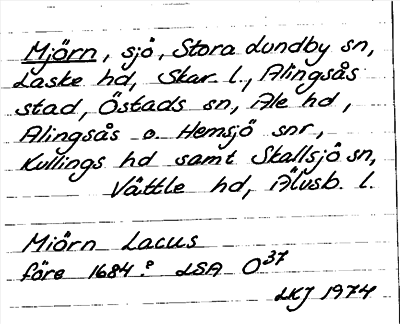 Mjörn, sjö, Stora Lundby sn,
Laske hd, Skar. l., Alingsås
stad, Östads sn, Ale hd,
Alingsås o. Hemsjö snr,
Kullings hd samt Skallsjö sn,
Vättle hd, Älvsb. l.
Miörn Lacus
före 1684? LSA O37
LKJ 1974